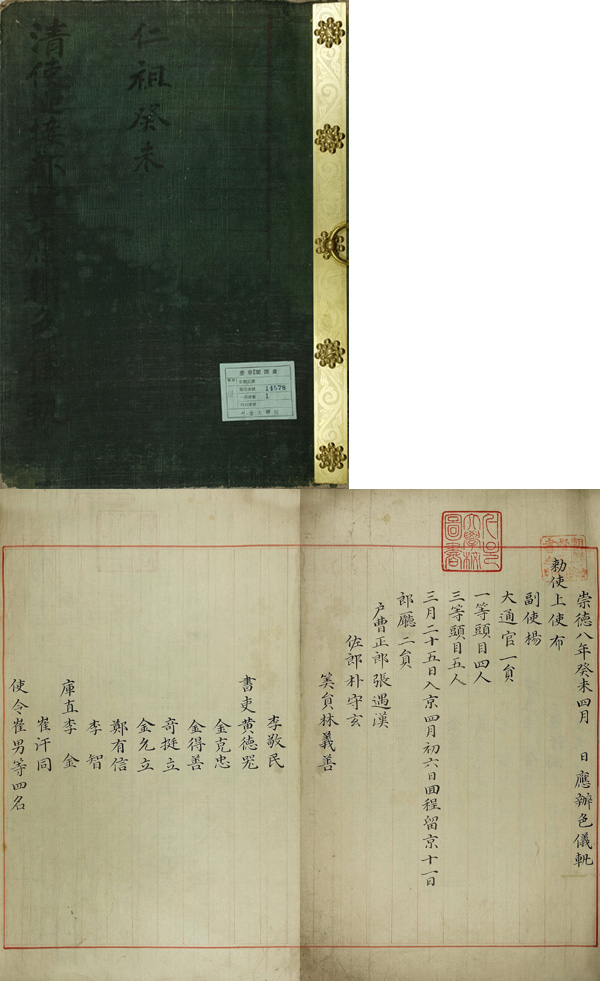 仁祖癸未
清使迎接都監應辦色儀軌
奎章閣圖書
14578
1
서울大學校
崇德八年癸未四月 日應辦色儀軌
勅使上使布
副使楊
大通官一員
一等頭目四人
三等頭目五人
三月二十五日入京四月初六日回程留京十一日
郎廳二員
户曹正郎張遇漢
佐郎朴守玄
筭員林義善
李敬民
書吏黄德
金克忠
金得善
奇挺立
金允立
鄭有信
李智
庫直李金
崔汗同
使令崔男等四名
서울大學校圖書